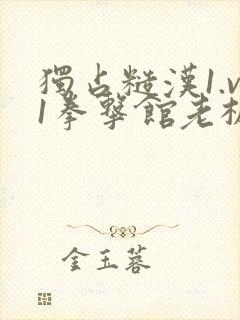 獨占糙漢1.v
1拳擊館老板
金玉蓉